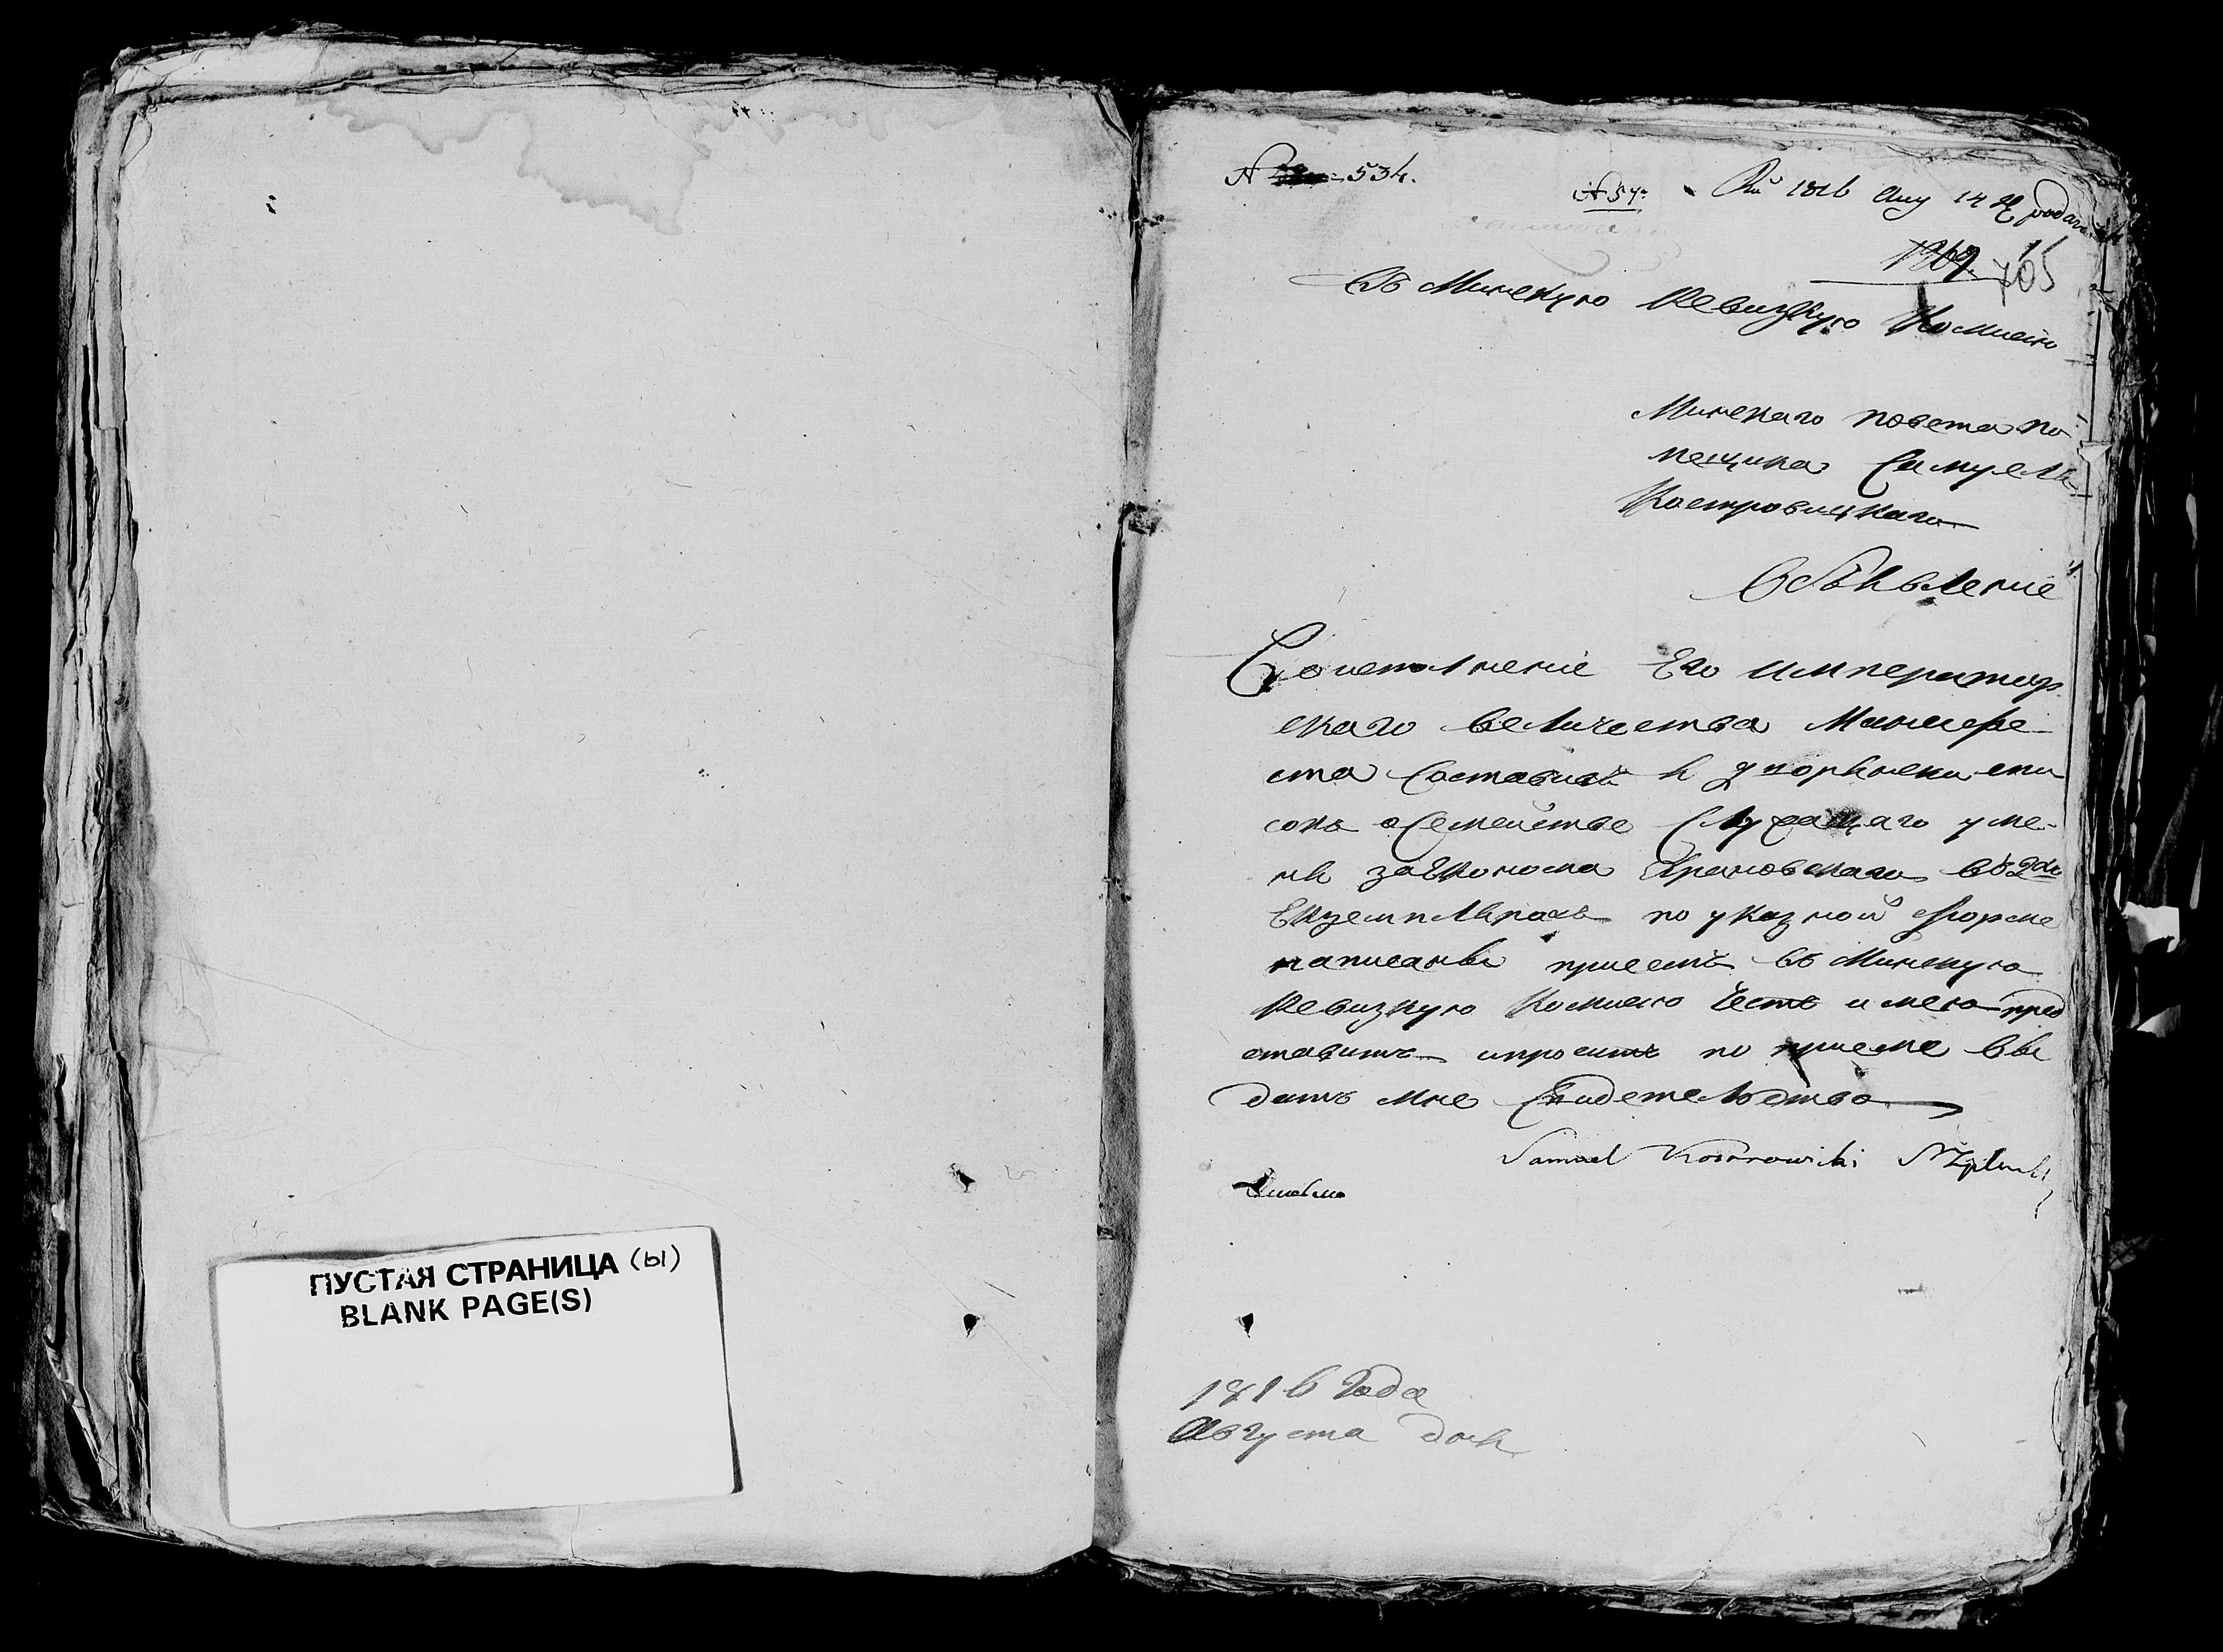 ПУСТАЯ СТРАНИЦА (ы)
BLANK PAGE(S)
№ 534.
№ 57.
1816 Aug 14 podan
1269. 705
Въ Минскую Ревизкую Комисию
Минскаго повета по
мещика Самуеля
Костровицкаго
Объявление
Во исполнение Его император
скаго величества Манифе-
ста Составивъ я дворянски спи
сокъ о Семействе Служащаго у ме-
ня за Економа Крановскаго въ 2хъ
Екземплярахъ по указной Форме
написаны присемъ въ Минскую
Ревизкую Комисию Честь имею пред
ставить и просить по приеме вы
дать мне Свидетельство
Samuel Kostrowicki
1816 Года
Августа дня